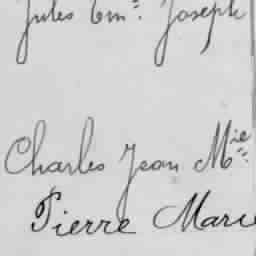 Jules Emn. Joseph
Charles Jean Mie
Pierre Marie